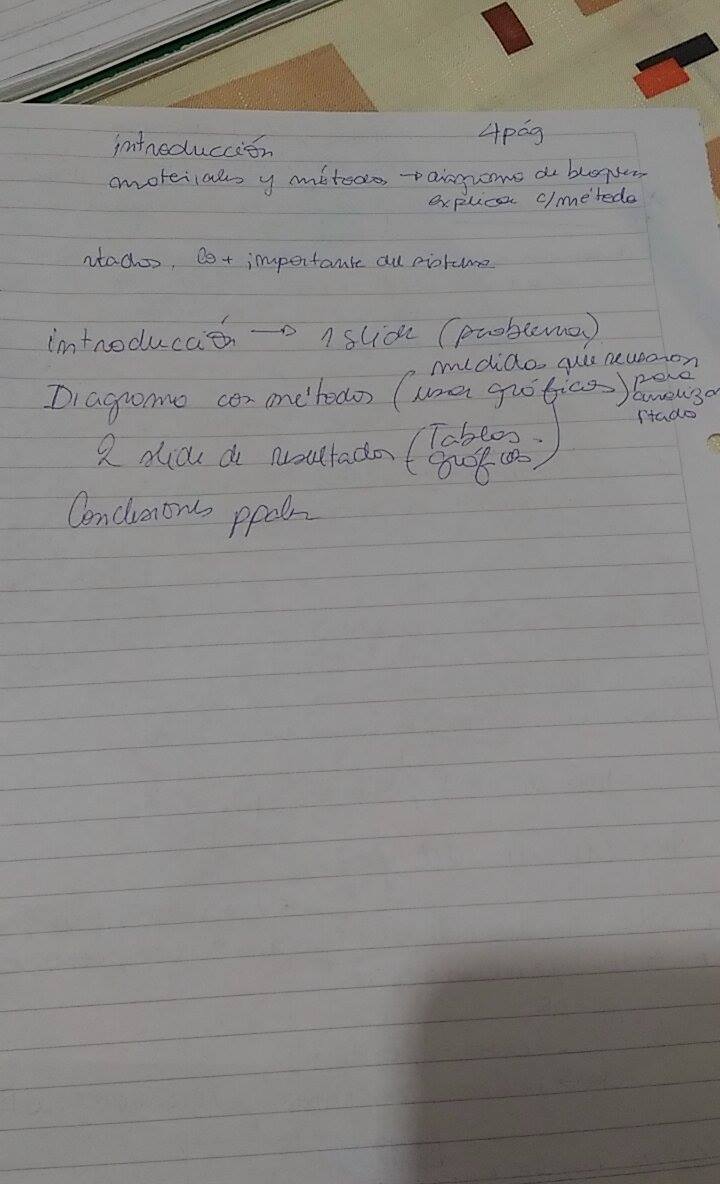 4pág
introducción
materiales y métodos → diagrama de bloques
explicar c/método
rtados. lo + importante del sistema
introducción → 1 slide (problema)
medidas que se usaron
Diagrama con métodos (usar gráficos) para
analizar
rtado
2 slide de resultados (Tablas
gráficos)
Conclusiones ppales